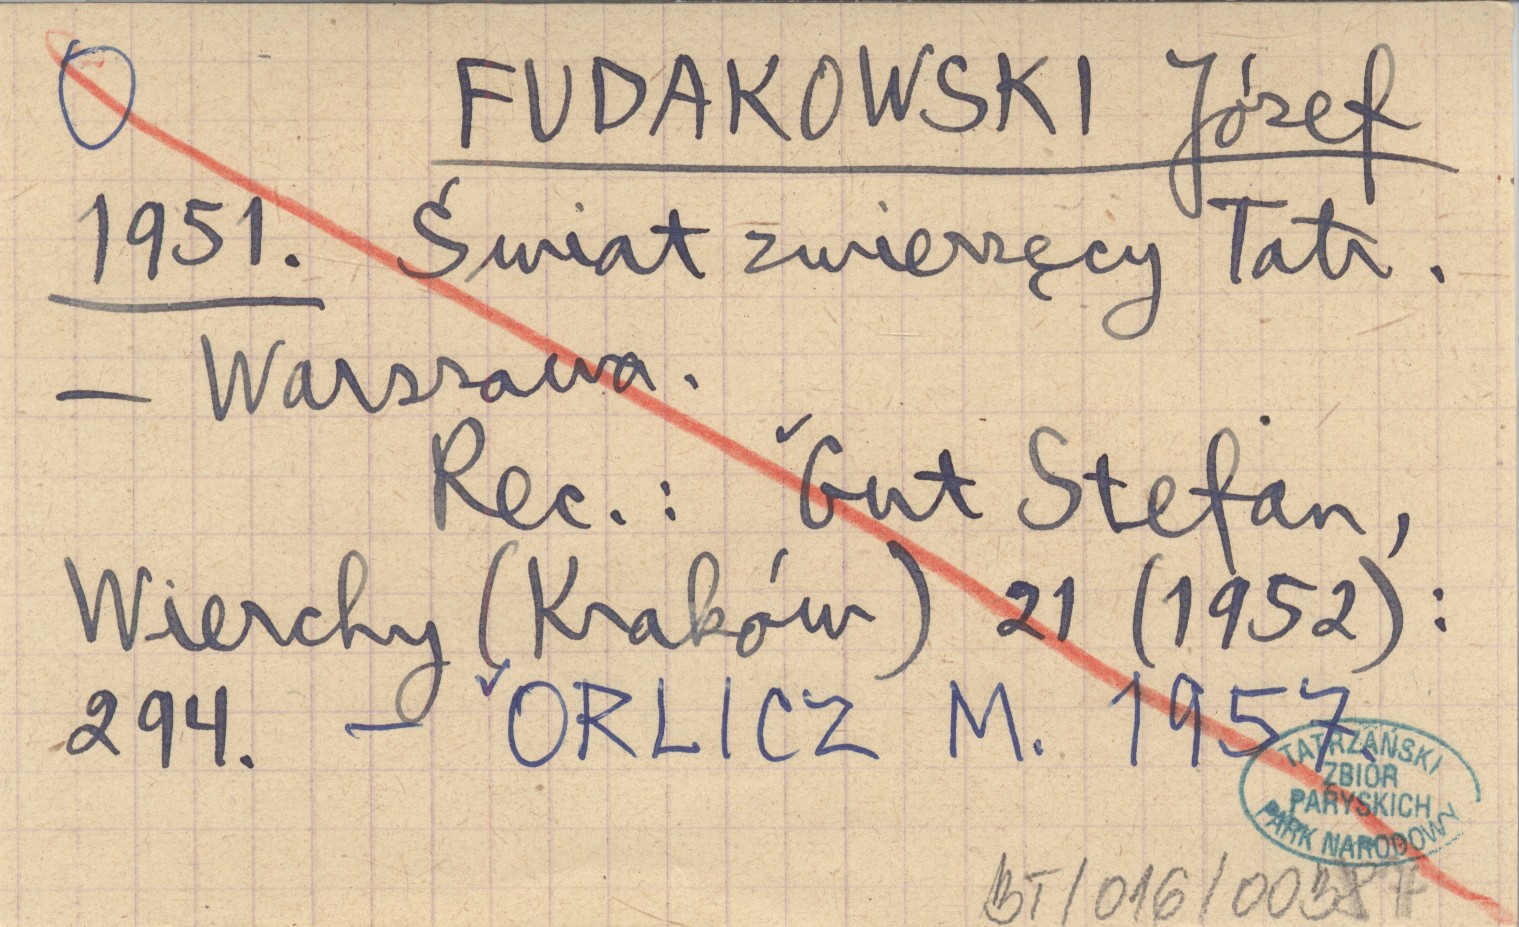 FUDAKOWSKI Józef
1951. Świat zwierzęcy Tatr.
— Warszawa.
Rec.: Gut Stefan,
Wierchy (Kraków) 21 (1952):
294. — ORLICZ M. 1957.
TATRZAŃSKI
ZBIÓR
PARYSKICH
PARK NARODOWY
BT/016/00387